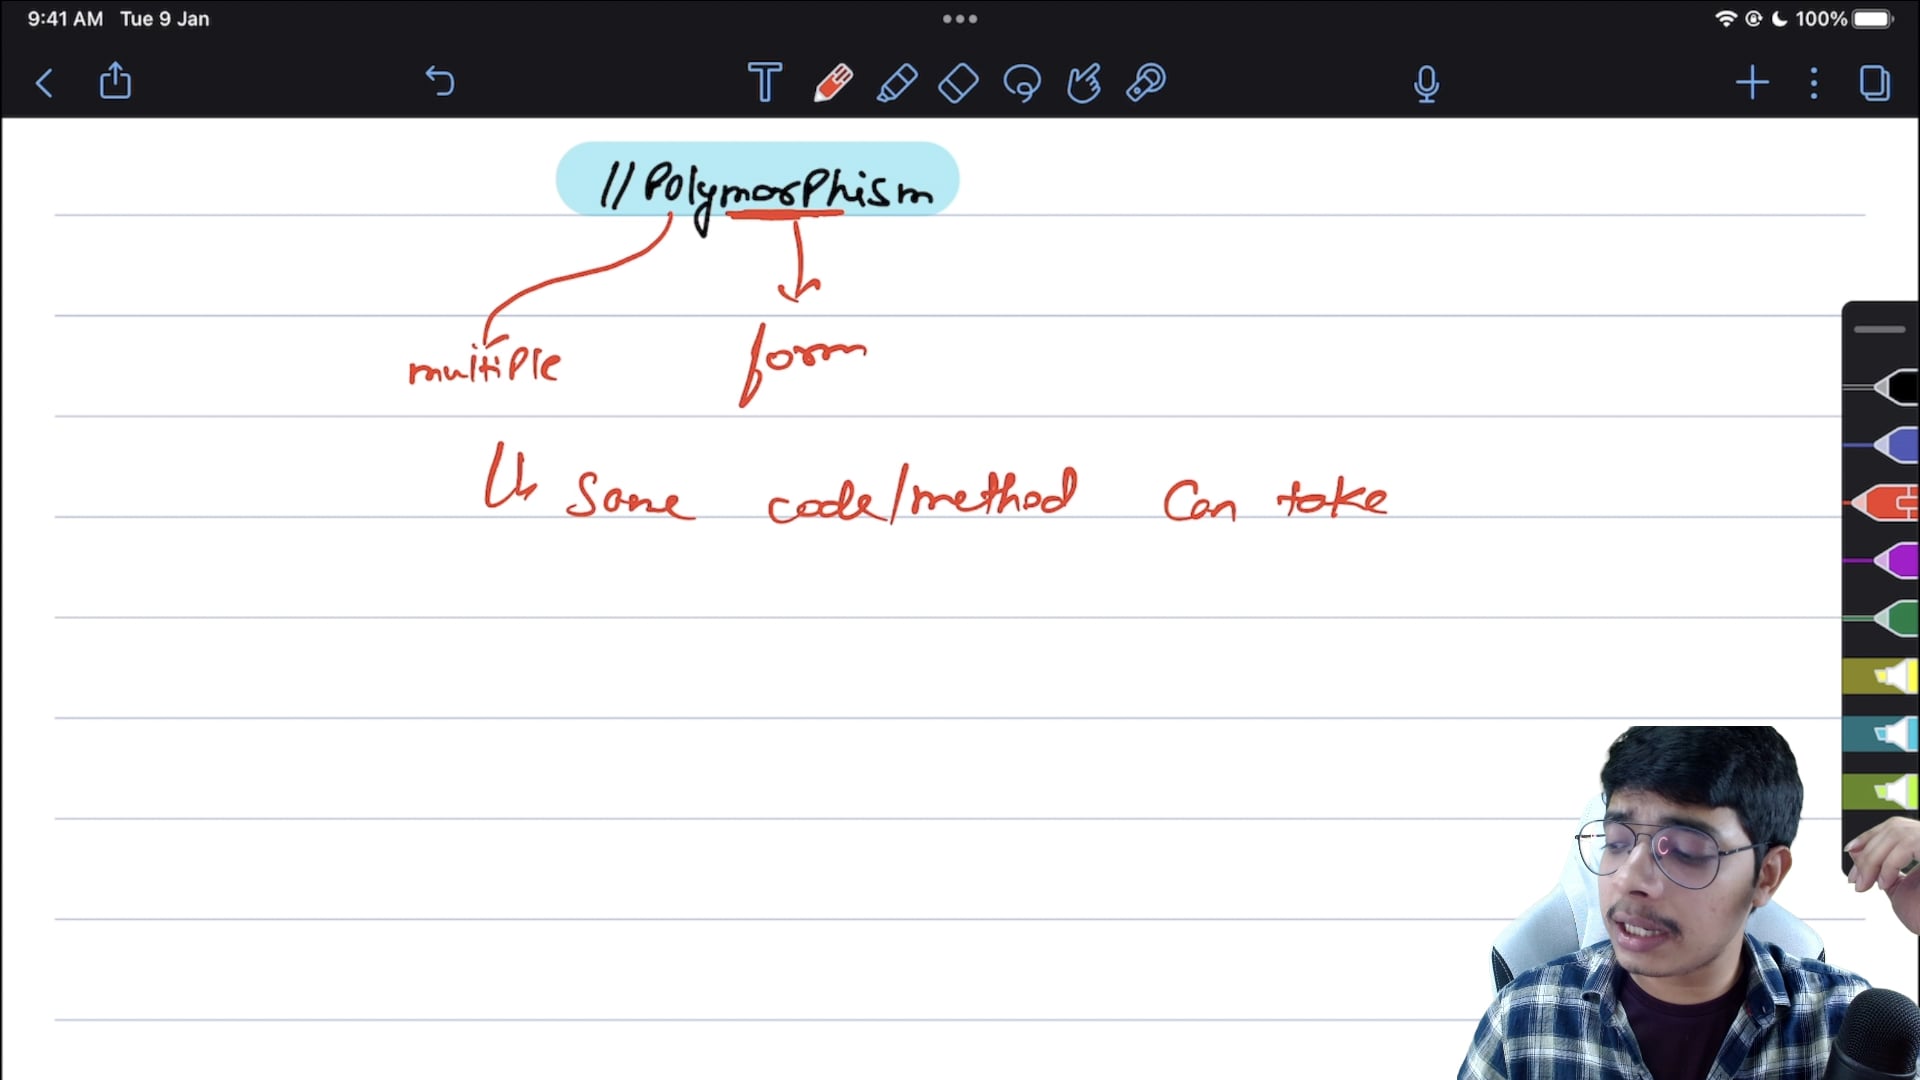 9:41 AM Tue 9 Jan
100%
//Polymorphism
multiple form
Same code/method Can take